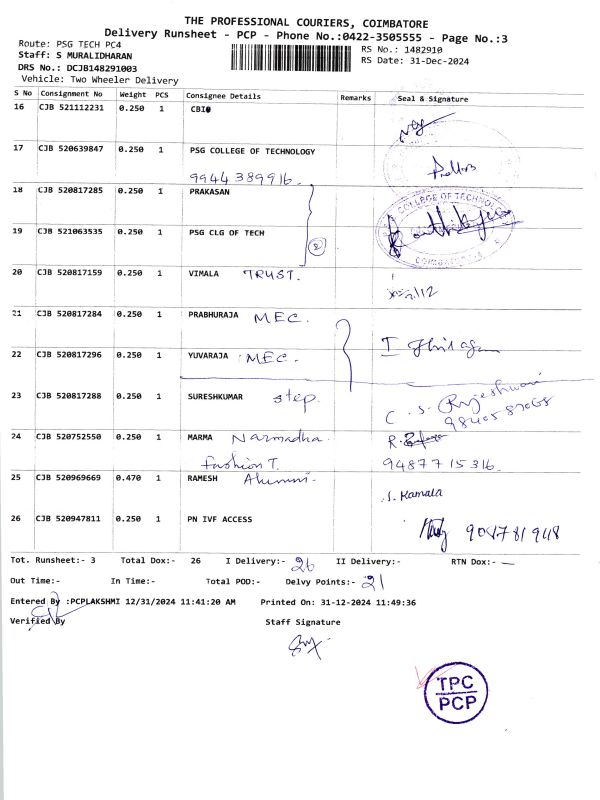 THE PROFESSIONAL COURIERS, COIMBATORE
Delivery Runsheet - PCP - Phone No.:0422-3505555 - Page No.:3
Route: PSG TECH PC4
RS No.: 1482910
Staff: S MURALIDHARAN
RS Date: 31-Dec-2024
DRS No.: DCJB148291003
Vehicle: Two Wheeler Delivery
S No Consignment No Weight PCS Consignee Details Remarks Seal & Signature
16 CJB 521112231 0.250 1 CBI
17 CJB 520639847 0.250 1 PSG COLLEGE OF TECHNOLOGY
9944389916.
18 CJB 520817285 0.250 1 PRAKASAN
COLLEGE OF TECHNOLOGY
19 CJB 521063535 0.250 1 PSG CLG OF TECH
2
20 CJB 520817159 0.250 1 VIMALA TRUST.
21 CJB 520817284 0.250 1 PRABHURAJA MEC.
22 CJB 520817296 0.250 1 YUVARAJA MEC.
23 CJB 520817288 0.250 1 SURESHKUMAR step.
C. S. Rajeshwari
9840587068
24 CJB 520752550 0.250 1 MARMA Narmadha
fashion T. 9487715316.
25 CJB 520969669 0.470 1 RAMESH Alumni.
S. Kamala
26 CJB 520947811 0.250 1 PN IVF ACCESS
Tot. Runsheet:- 3 Total Dox:- 26 I Delivery:- 26 II Delivery:- RTN Dox:- —
Out Time:- In Time:- Total POD:- Delvy Points:- 21
Entered By :PCPLAKSHMI 12/31/2024 11:41:20 AM Printed On: 31-12-2024 11:49:36
Verified By Staff Signature
TPC
PCP